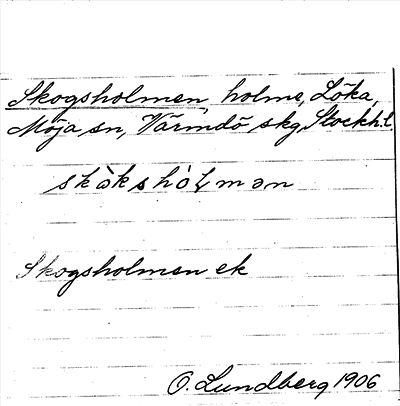 Skogsholmen, holme, Löka,
Möja sn, Värmdö skg, Stockh.l.
skòkshòlmən
Skogsholmen ek
O. Lundberg 1906